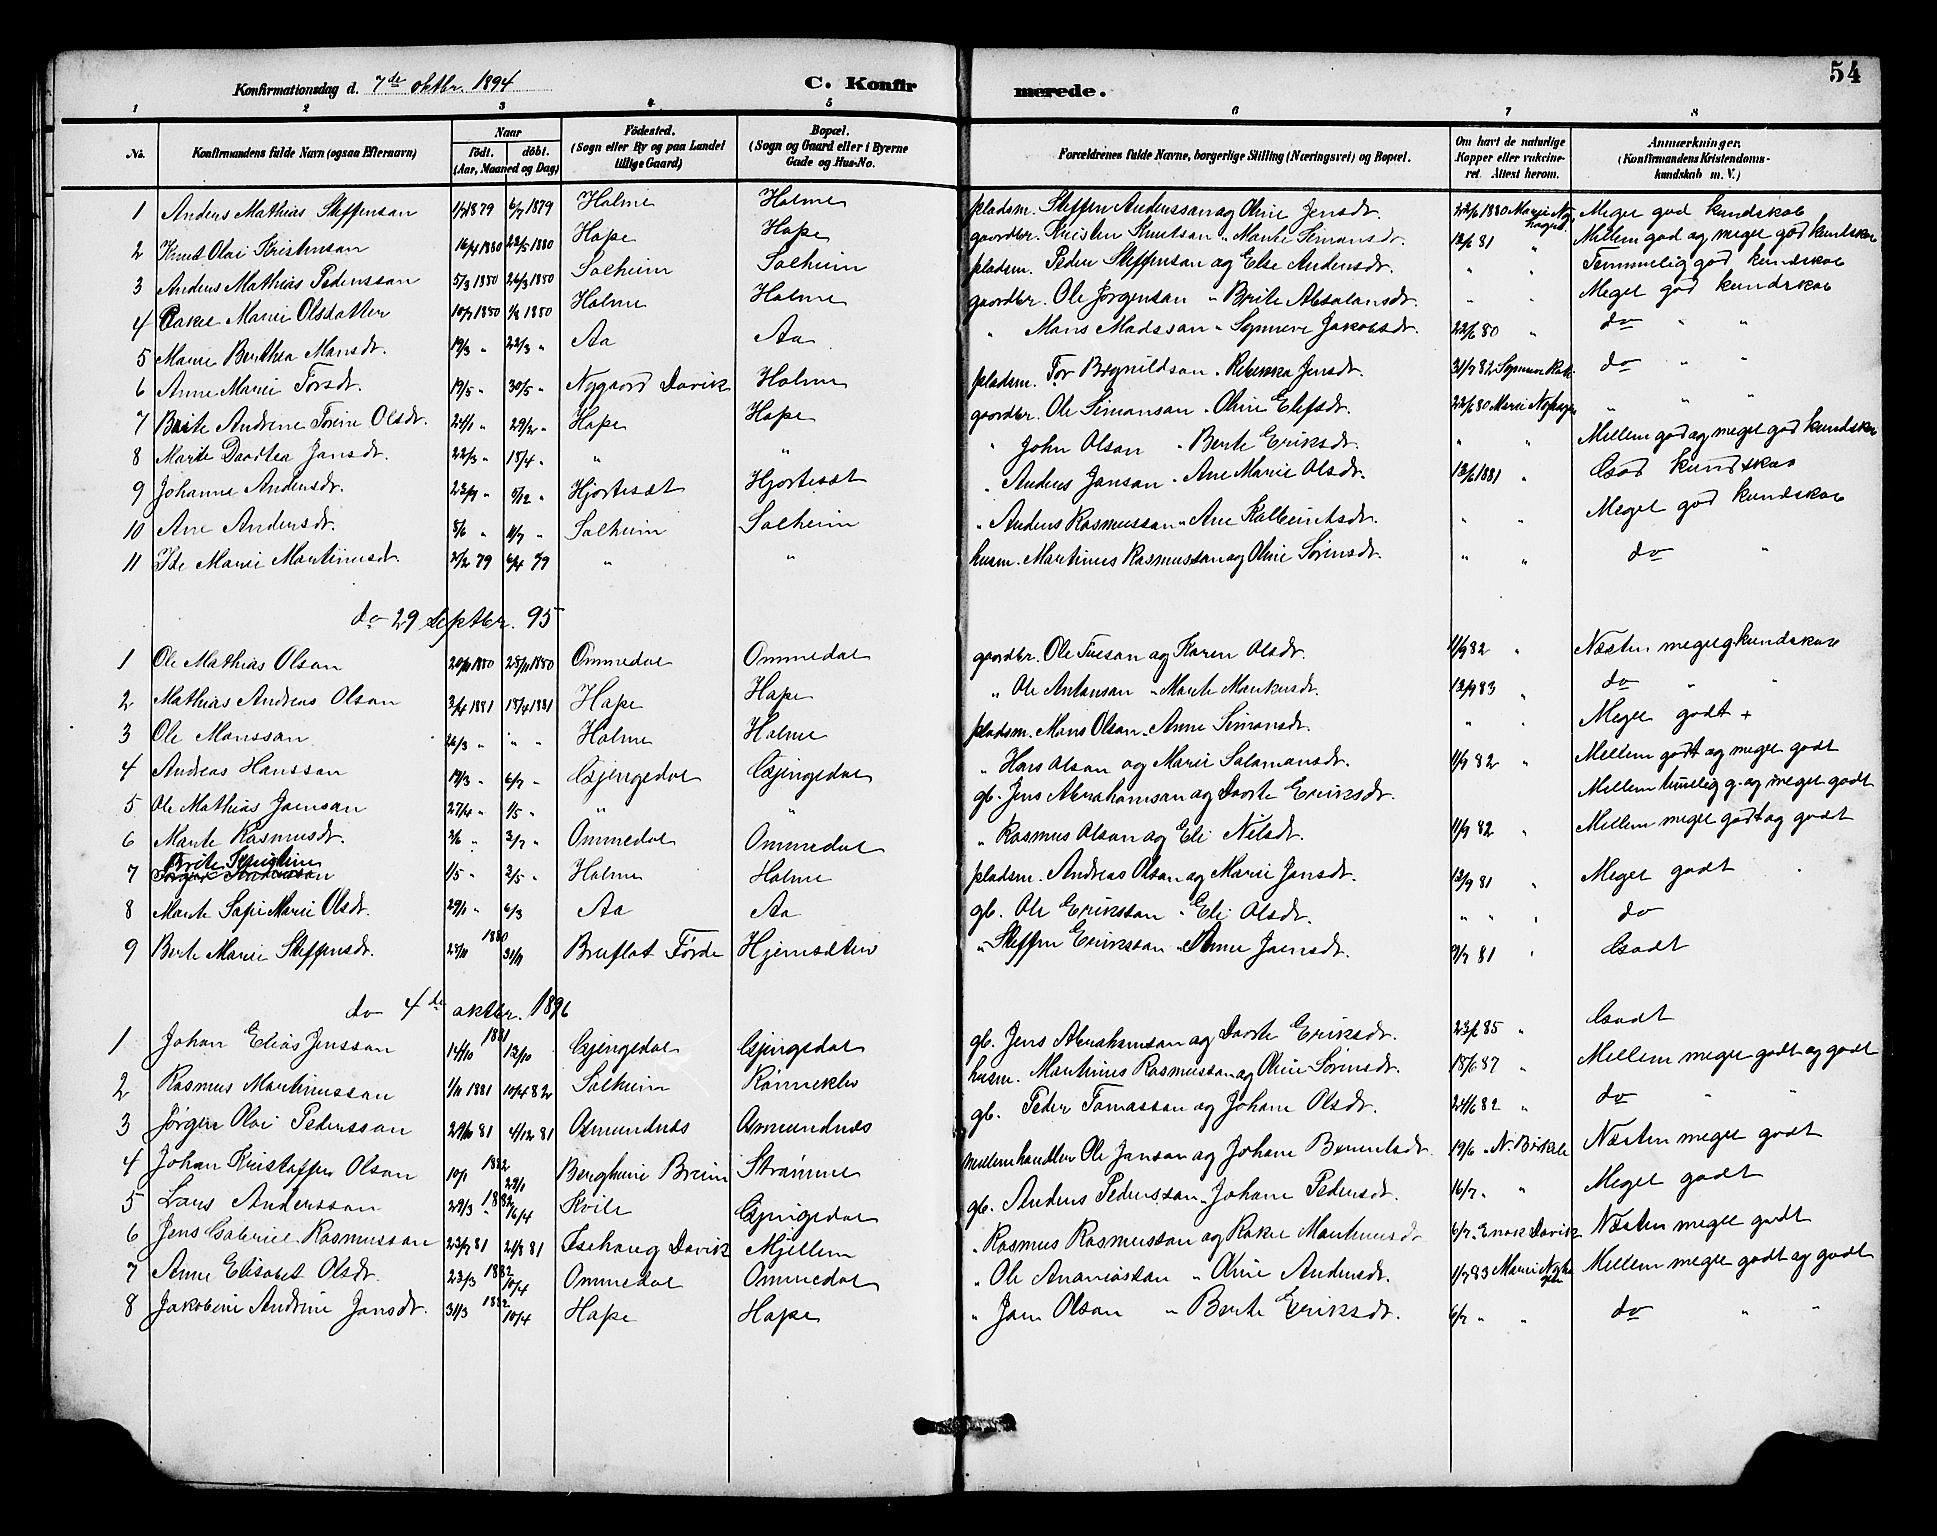 54
Konfirmationsdag d. 7de oktbr. 1894 C. Konfirmerede.
1 2 3 4 5 6 7 8
No. Konfirmandens fulde Navn (ogsaa Efternavn) Naar födt. döbt. (Aar, Maaned og Dag) Födested. (Sogn eller By og paa Landet tillige Gaard) Bopæl. (Sogn og Gaard eller i Byerne Gade og Hus-No. Forældrenes fulde Navne, borgerlige Stilling (Næringsvei) og Bopæl. Om havt de naturlige Kopper eller vakcineret. Attest herom. Anmærkninger. (Konfirmandens Kristendomskundskab m. V.)
1 Anders Mathias Steffensan 1879 6/7 1879 Holme Holme pladsm. Steffen Anderssan og Oline Jensdr. 22/6 1880 Marie Meget god kundskab
2 Knut Olai Kristensan 16/4 1880 22/5 1880 Hope Hope gaardbr. Kristen Knutsan " Marte Simonsdr. 13/6 81 " Mellem god og meget god kundskab
3 Anders Mathias Pederssan 5/3 1880 26/3 1880 Solheim Solheim pladsm. Peder Steffensan og Else Andersdr. " " Temmelig god kundskab
4 Rakel Marie Olsdatter 1880 1880 Holme Holme gaardbr. Ole Jørgensan " Brite Absalansdr. " " Meget god kundskab
5 Marie Berthea Mansdr. 19/3 " 22/3 " Aa Aa " Mons Madssan " Synneve Jakobsdr. 22/6 80 " do " "
6 Anne Marie Torsdr. 19/5 " 30/5 " Nygaard Davik Holme pladsm. Tor Bøgnildsan " Rebekka Jensdr. 82 Synneve do " "
7 Brite Andrine Torine Olsdr. 24/1 " 29/2 " Hope Hope gaardbr. Ole Simonsan " Oline Elefsdr. 22/6 80 Marie " " "
8 Marte Dardtea Jansdr. 22/3 " 18/4 " " " " John Olsan " Berte Eriksdr. " " Mellem god og meget god kundskab
9 Johanne Andersdr. 23/9 " 5/12 " Hjortesæt Hjortesæt " Anders Jansan " Ane Marie Olsdr. 13/6 1881 " God kundskab
10 Ane Andersdr. 8/6 " 4/7 " Solheim Solheim " Anders Rasmussan " Ane Kolbeintsdr. " " Meget god kundskab
11 Ide Marie Martinusdr. 2/2 79 6/4 79 " " husm. Martinus Rasmussan og Oline Sørensdr. " " do "
do 29 septbr. 95
1 Ole Mathias Olsan 1880 1880 Ommedal Ommedal gaardbr. Ole Tuesan og Karen Olsdr. 11/9 82 " Næsten meget g kundskab
2 Mathias Andreas Olsan 3/4 1881 18/4 1881 Hope Hope " Ole Antonsan " Marte Markusdr. 12/9 83 " do " "
3 Ole Monssan 26/3 " " " Holme Holme pladsm. Mons Olsan " Anne Simonsdr. " " Meget godt +
4 Andreas Hanssan 19/3 " 6/7 " Gjengedal Gjengedal " Hans Olsan og Marie Salamansdr. 11/9 82 " Mellem godt og meget godt
5 Ole Mathias Jaensan 27/4 " 1/5 " " " gb. Jens Abrahamsan og Daarte Eriksdr. Mellem g. og meget godt
6 Marte Rasmusdr. 2/6 " 3/7 " Ommedal Ommedal " Rasmus Olsan og Eli Nelsdr. 11/9 82 " Mellem meget godt og godt
7 Brite 1/5 " 2/5 " Holme Holme pladsm. Andreas Olsan og Marie Jansdr. 12/9 81 " Meget godt
8 Marte Sofie Marie Olsdr. 29/1 " 6/3 Aa Aa gb. Ole Erikssan " Eli Olsdr. " " " do
9 Berte Marie Steffensdr. 25/11 1880 31/11 Breiflot Førde Hjemsætter " Steffen Erikssan " Anne Jaensdr. 9/7 81 " Godt
do 4de oktbr. 1896
1 Johan Elias Jenssan 14/10 1881 12/10 Gjengedal Gjengedal gb. Jens Abrahamsan og Daarte Eriksdr. 23/6 85 " Godt
2 Rasmus Martinussan 1/11 1881 10/4 82 Solheim Rønneklev husm. Martinus Rasmussan og Oline Sørensdr. 18/6 87 " Mellem meget godt og godt
3 Jørgen Olai Pederssan 29/10 81 4/12 81 Osmundnes Osmundnes gb. Peder Tomassan og Johane Olsdr. 24/6 82 " do " "
4 Johan Kristaffer Olsan 10/1 1882 29/1 Bergheim Breim Strømme mellemhandler Ole Jansan og Johane Berentsdr. 19/6 " N. Birkeli Næsten meget godt
5 Lars Anderssan 29/3 1882 16/4 Kvile Gjengedal gb. Anders Pederssan " Johane Pedersdr. 16/7 " " Meget godt
6 Jens Gabriel Rasmussan 23/7 81 21/8 81 Isehaug Davik Mjellem " Rasmus Rasmussan og Rakel Martinusdr 6/7 " Enok Davik Næsten meget godt
7 Anne Elisabet Olsdr. 23/3 1882 10/4 Ommedal Ommedal " Ole Ananiassan " Oline Andersdr. 1/7 83 Marie Mellem meget godt og godt
8 Jakobine Andrine Jansdr. 31/3 1882 10/4 Hope Hope " Jan Olsan " Berte Eriksdr. 6/7 " " do " "